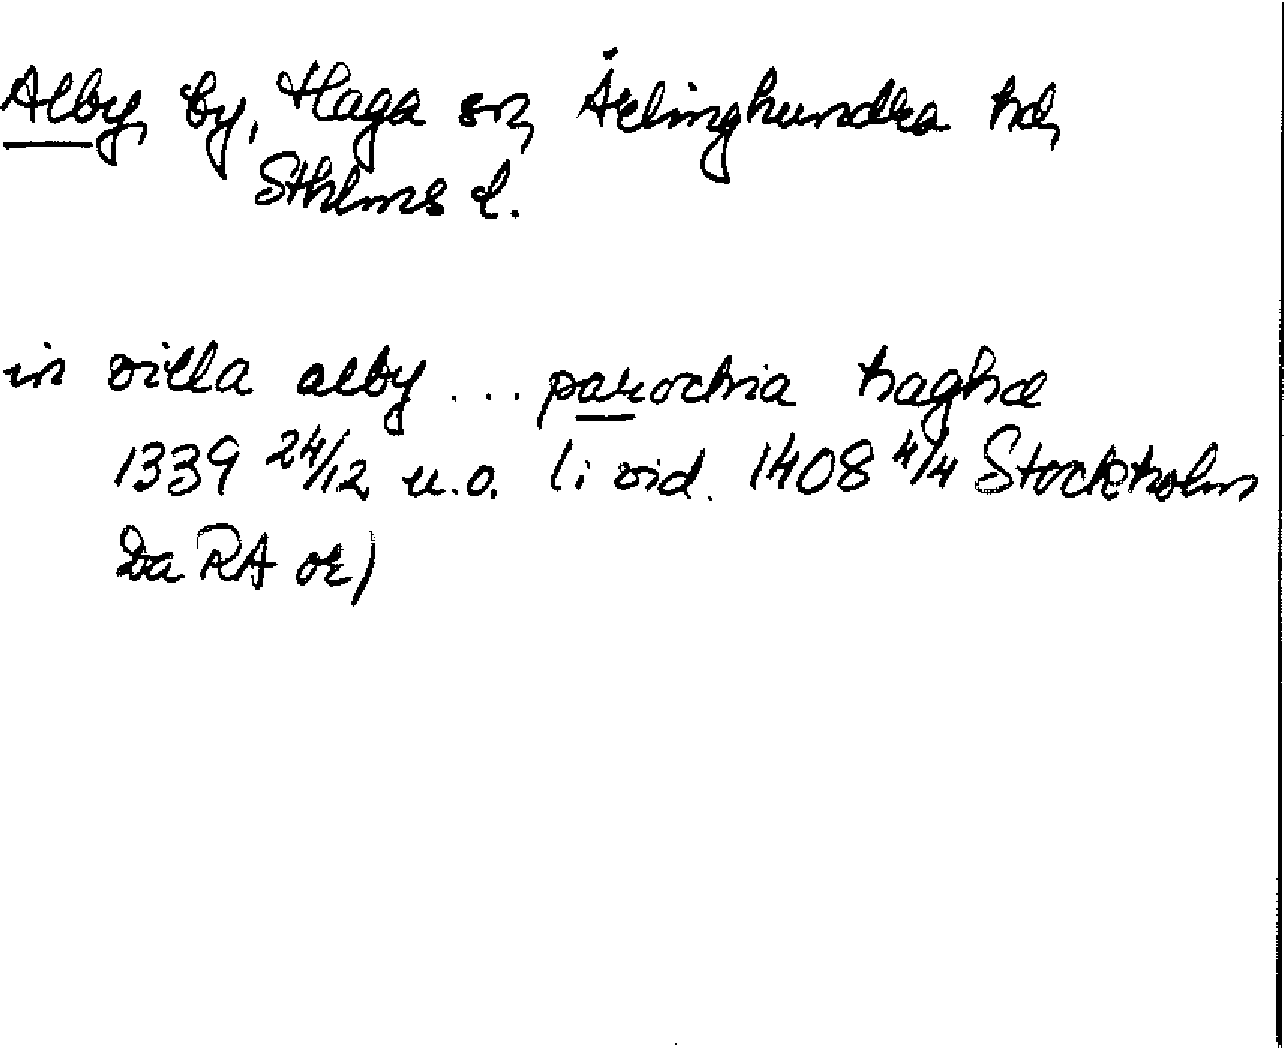 Alby, by, Haga sn, Ärlinghundra hd,
Sthlms l.
in villa alby ... parochia haghæ
1339 24/12 u.o. (i vid. 1408 4/4 Stockholm
Da RA or)